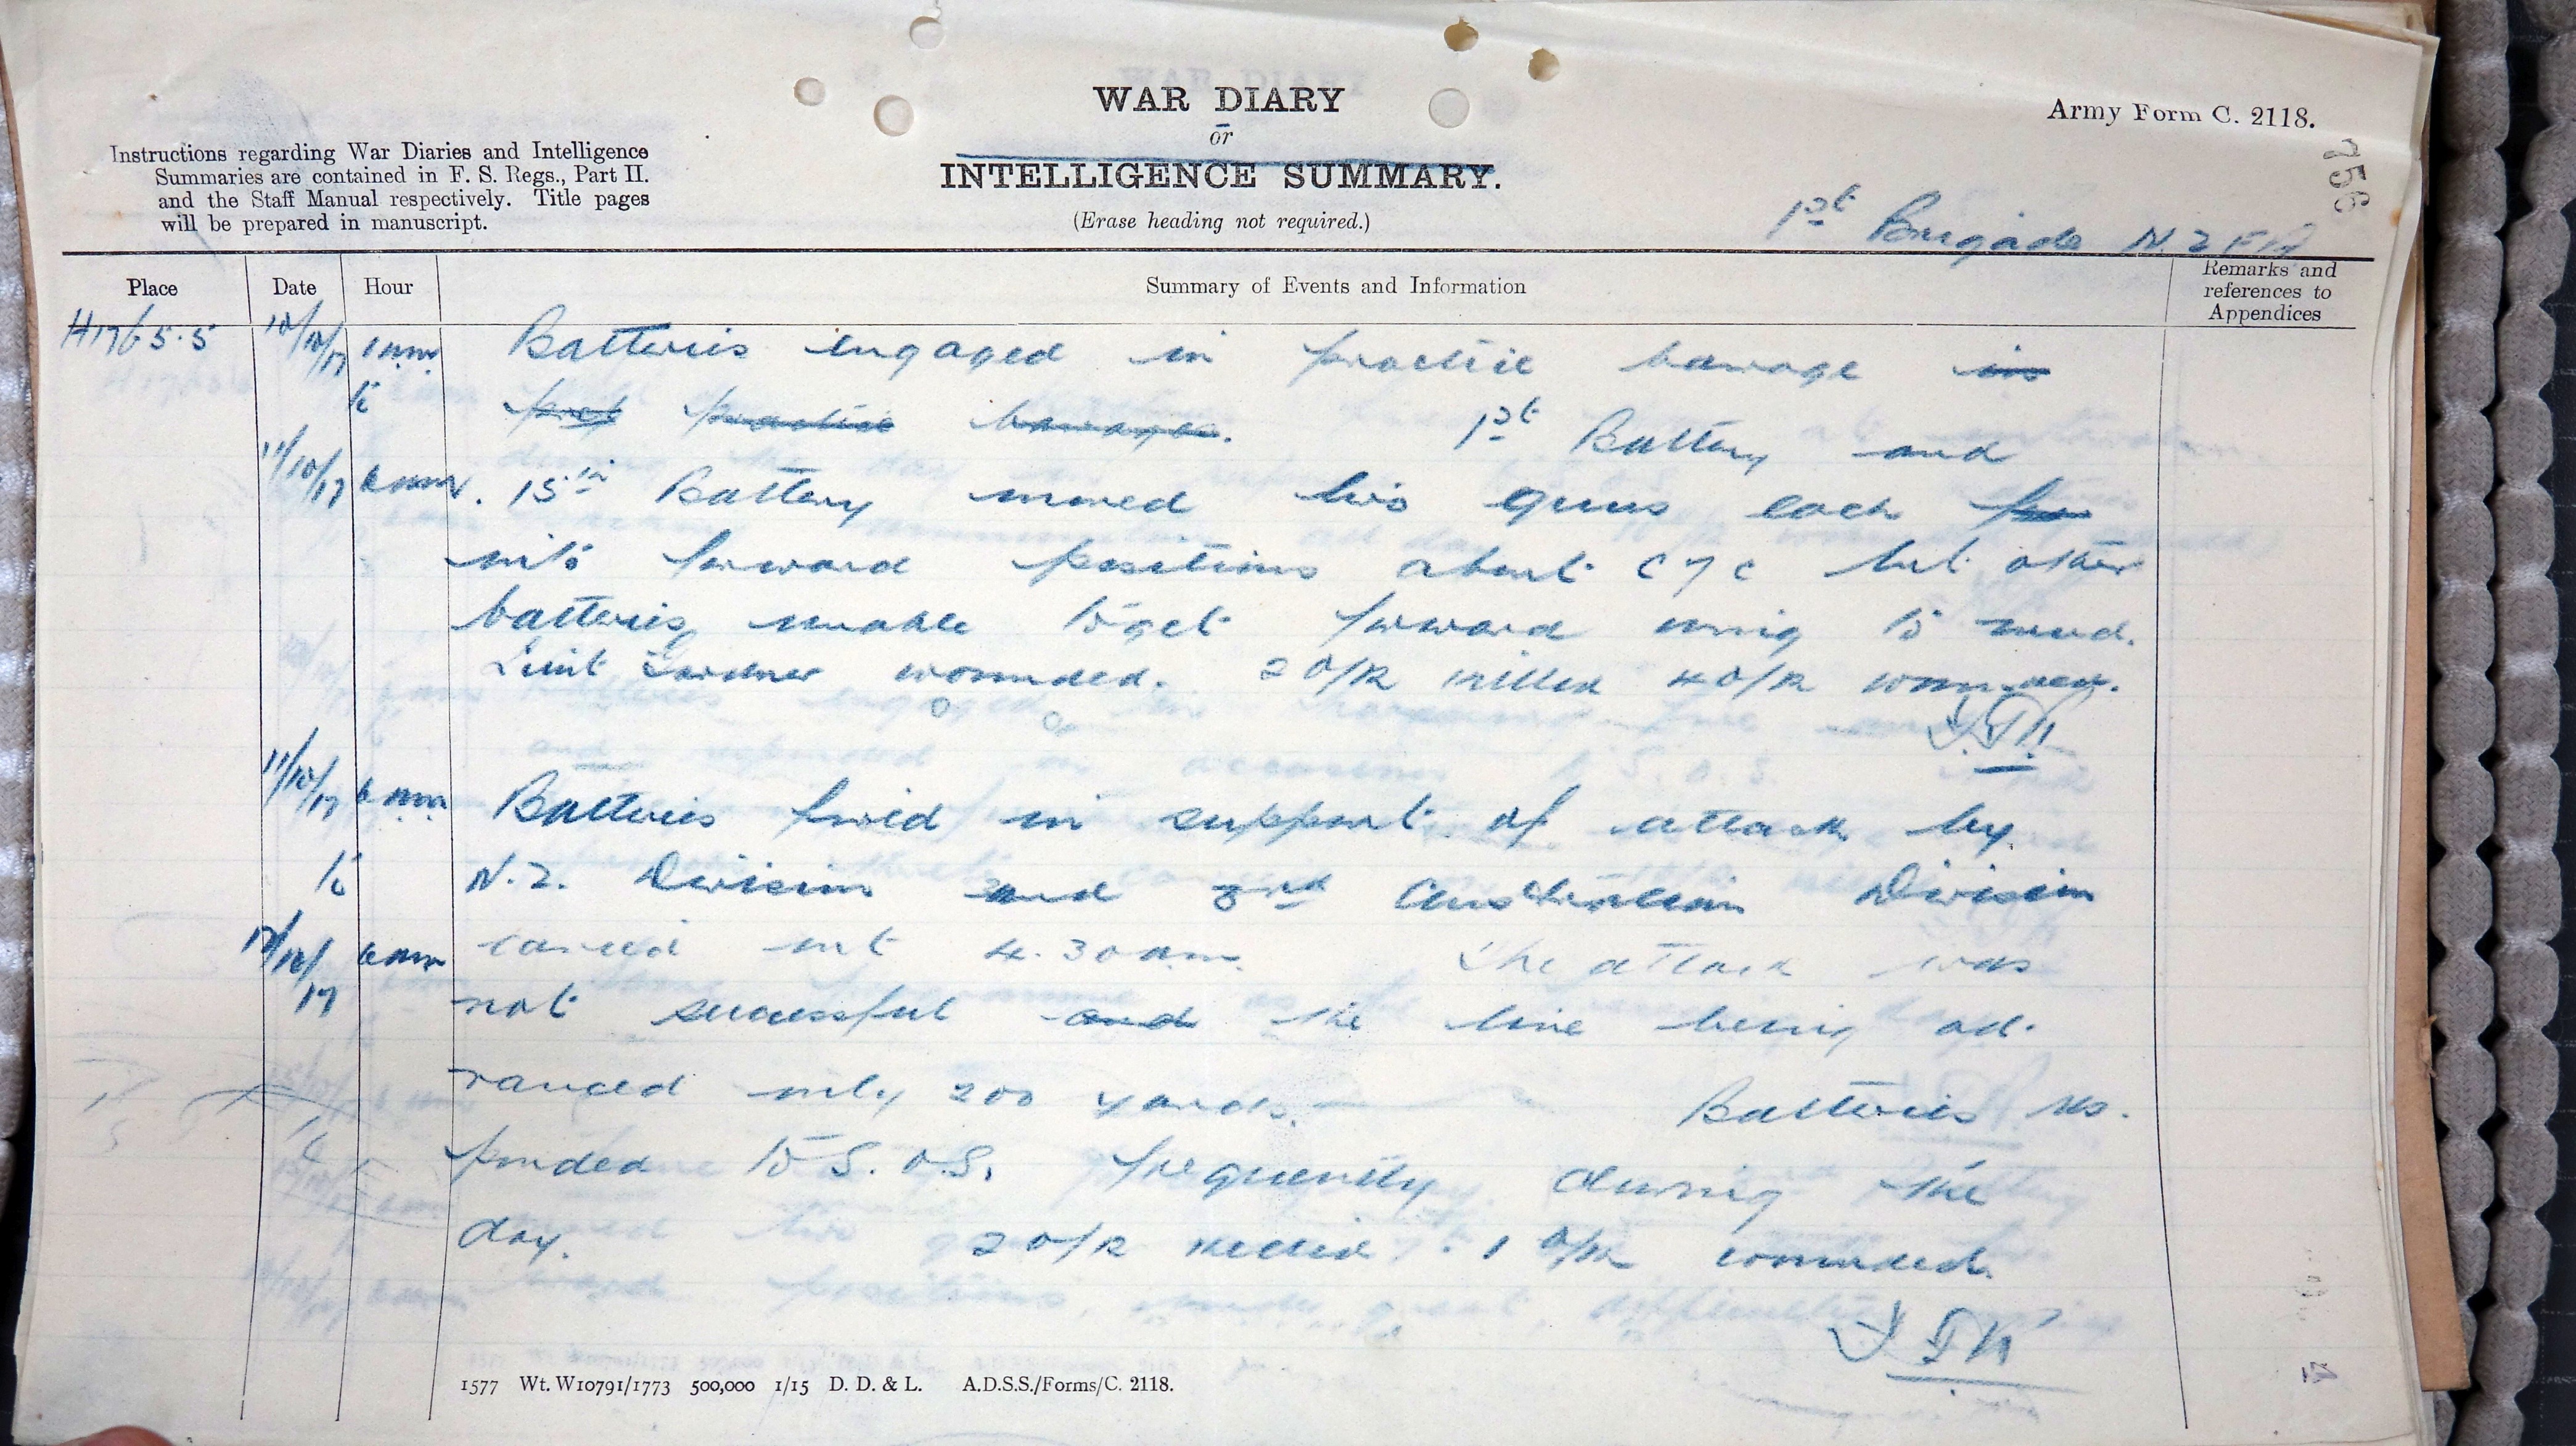 WAR DIARY
or
INTELLIGENCE SUMMARY.
(Erase heading not required.)
Army Form C. 2118.
756
Instructions regarding War Diaries and Intelligence
Summaries are contained in F. S. Regs., Part II.
and the Staff Manual respectively. Title pages
will be prepared in manuscript.
1st Brigade N.Z.F.A
Place Date Hour Summary of Events and Information Remarks and references to Appendices
H17b5.5 10/10/17 6 am Batteries engaged in practice barrage in
to practice barrage. 1st Battery and
11/10/17 6 am. 15th Battery moved two guns each
into forward positions about C 7 c but other
batteries unable to get forward owing to mud.
Lieut Gardner wounded. 2 O/R killed 4 O/R wounded.
11/10/17 6 am Batteries fired in support of attack by
to N.Z. Division and 3rd Australian Division
12/10/17 6 am carried out 4.30 am. The attack was
not successful and the line being ad-
vanced only 200 yards. Batteries res-
ponded to S.O.S. frequently during the
day. 2 O/R killed. 1 O/R wounded.
1577 Wt. W10791/1773 500,000 1/15 D. D. & L. A.D.S.S./Forms/C. 2118.